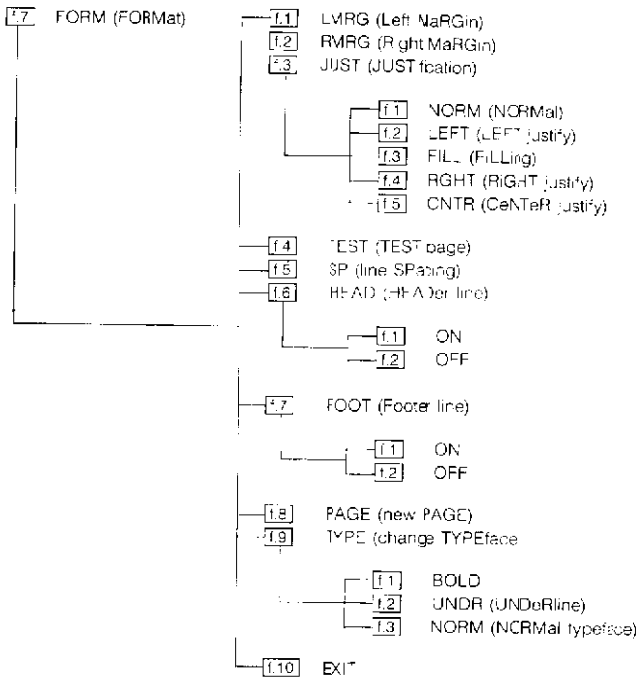 f.7 FORM (FORMat)
f.1 LMRG (Left MaRGin)
f.2 RMRG (Right MaRGin)
f.3 JUST (JUSTification)
f.1 NORM (NORMal)
f.2 LEFT (LEFT justify)
f.3 FILL (FILLing)
f.4 RGHT (RiGHT justify)
f.5 CNTR (CeNTeR justify)
f.4 TEST (TEST page)
f.5 SP (line SPacing)
f.6 HEAD (HEADer line)
f.1 ON
f.2 OFF
f.7 FOOT (Footer line)
f.1 ON
f.2 OFF
f.8 PAGE (new PAGE)
f.9 TYPE (change TYPEface
f.1 BOLD
f.2 UNDR (UNDeRline)
f.3 NORM (NORMal typeface)
f.10 EXIT